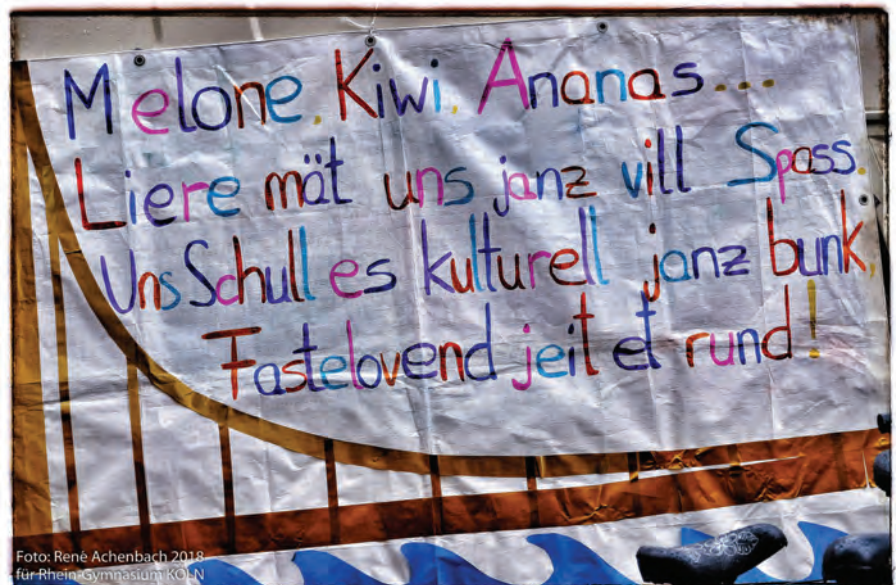 Melone, Kiwi, Ananas...
Liere mät uns janz vill Spass.
Uns Schull es kulturell janz bunk,
Fastelovend jeit et rund!
Foto: René Achenbach 2018
für Rhein-Gymnasium KÖLN